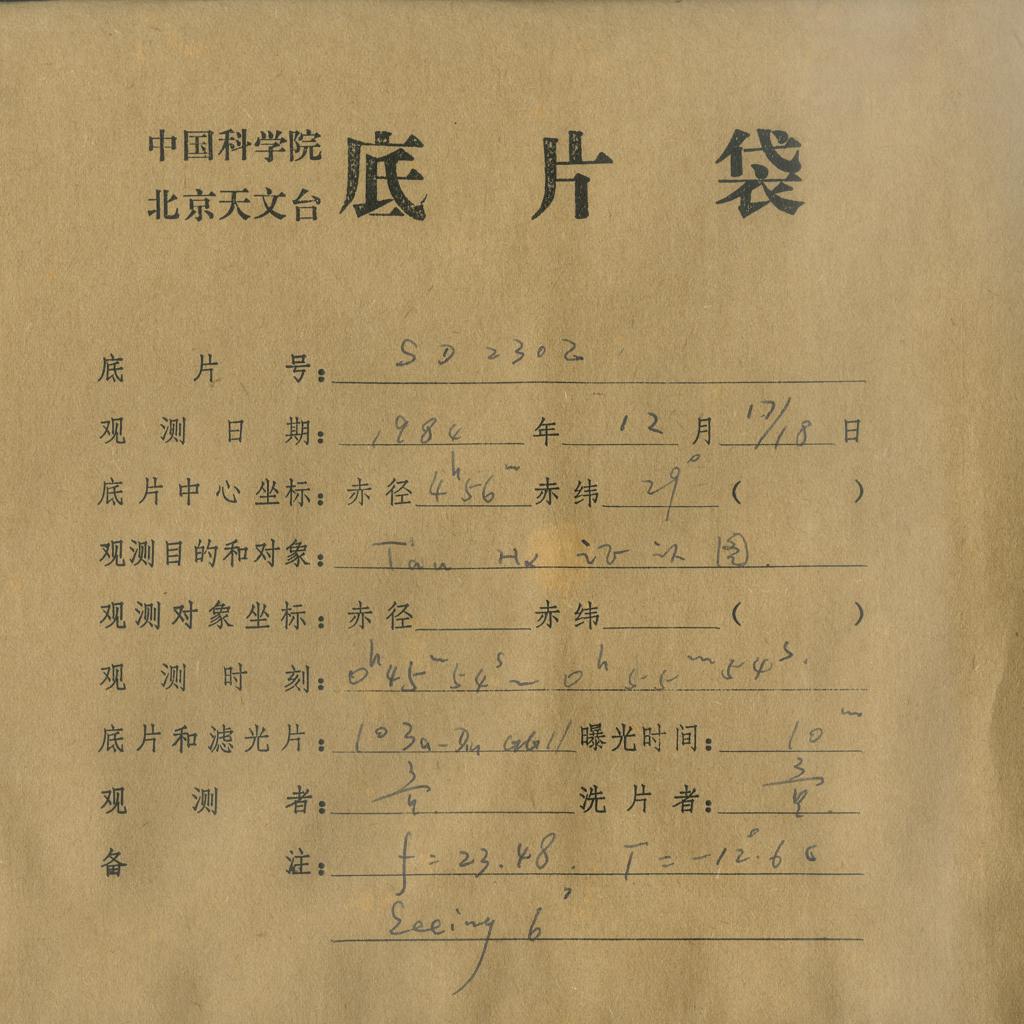 中国科学院
北京天文台
底片袋
底片号: SD 2302
观测日期: 1984 年 12 月 17/18 日
底片中心坐标: 赤径 4h56m 赤纬 29° ( )
观测目的和对象: Tau Hα 证认图.
观测对象坐标: 赤径 赤纬 ( )
观测时刻: 0h45m54s ~ 0h55m54s.
底片和滤光片: 103a-D GG11 曝光时间: 10m
观测者: 洗片者:
备注: f = 23.48. T = -12°.6
Seeing 6"